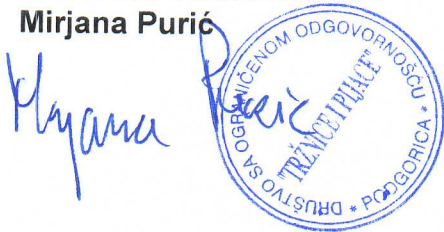 Mirjana Purić
Mirjana Purić
DRUŠTVO SA OGRANIČENOM ODGOVORNOŠĆU * PODGORICA *
"TRŽNICE I PIJACE"